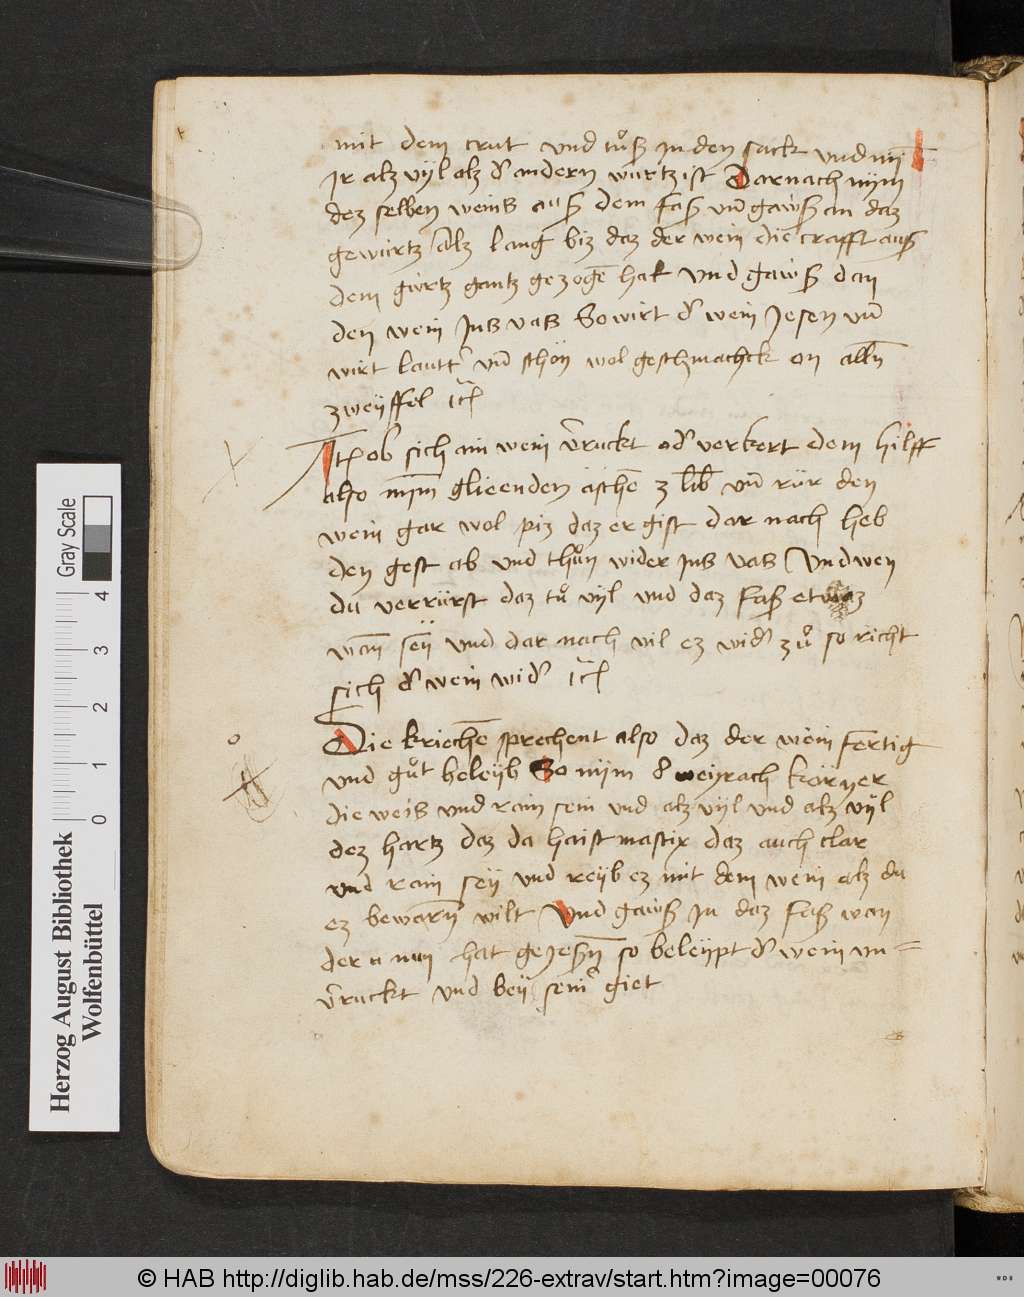 mit dem crut vnd tuͦß in den sack vnd nī
Ir alz vyl alz d' andern wurtz ist Darnach nym
dez selben weins auß dem faß vn̄ gawß an daz
gewürtz Alz lang biz daz der wein die crafft auß
dem gwrtz gantz gezogē hat vnd gawß dan
den wein Ins vas So wirt d' wein Jesen vn̄
wirt lautt' vn̄ schön wol geschmachck on alln̄
zweyffel
It ob sich ain wein v̄ruckt od' verkert dem hilff
also nym glieenden aschē 3 lib vn̄ rür den
wein gar wol piz daz er gist dar nach heb
den gest ab vnd thuͦn wider Ins vas Vnd wen
du verrürst daz tuͦ vyl vnd daz faß etwaz
wan̄ sey vnd dar nach vil ez wid' zuͦ so richt
sich d' wein wid'
Die kriechē sprechent also daz der wein fertig
vnd guͦt beleyb So nym 8 weyrach körner
die weis vnd rain sein vnd alz vyl vnd alz vyl
dez hartz daz da haist mastix daz auch clar
vnd rain sey vnd reyb ez mit dem wein alz du
ez bewarn̄ wilt Vnd gawß In daz faß wan
der nun hat geJeßn̄ so beleypt d' wein vn=
v̄ruckt vnd bey sein' giet
Herzog August Bibliothek
Wolfenbüttel
0 1 2 3 4
Gray Scale
© HAB http://diglib.hab.de/mss/226-extrav/start.htm?image=00076